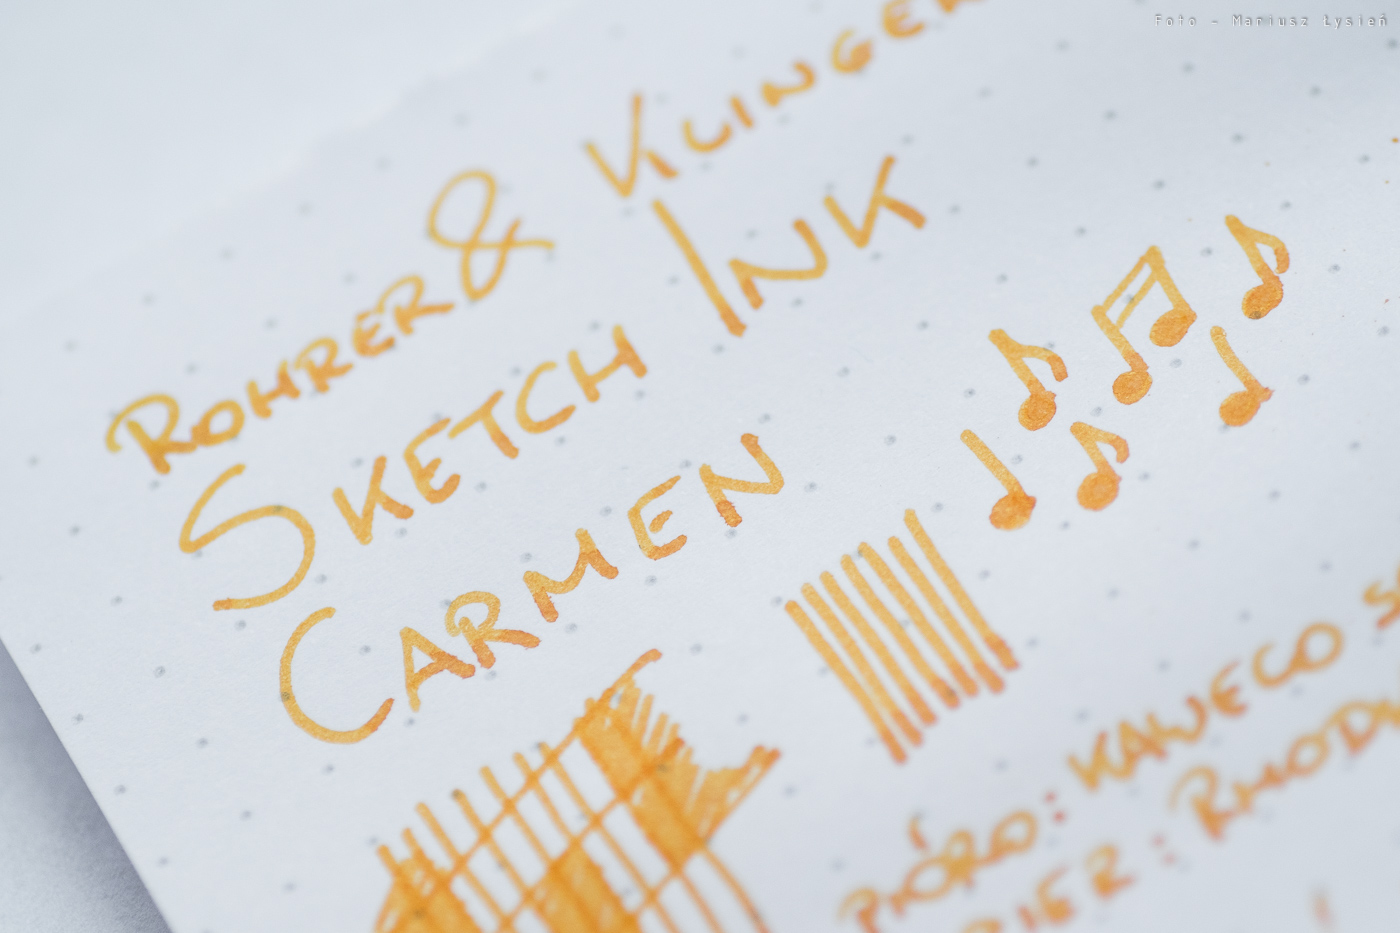 Foto - Mariusz Łysień
ROHRER & KLINGER
SKETCH INK
CARMEN
PIÓRO: KAWECO